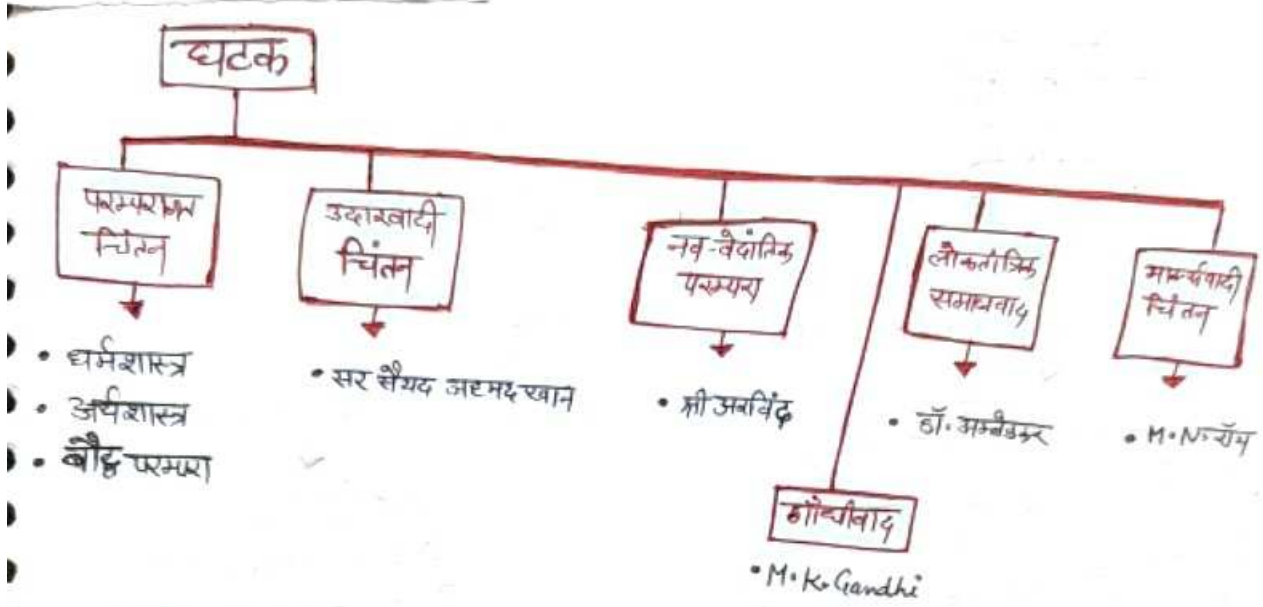 घटक
परम्परागत
चिंतन
• धर्मशास्त्र
• अर्थशास्त्र
• बौद्ध परम्परा
उदारवादी
चिंतन
• सर सैयद अहमद खान
नव-वेदांतिक
परम्परा
• श्री अरविंद
गाँधीवाद
• M.K. Gandhi
लोकतांत्रिक
समाजवाद
• डॉ. अम्बेडकर
मार्क्सवादी
चिंतन
• M.N. रॉय